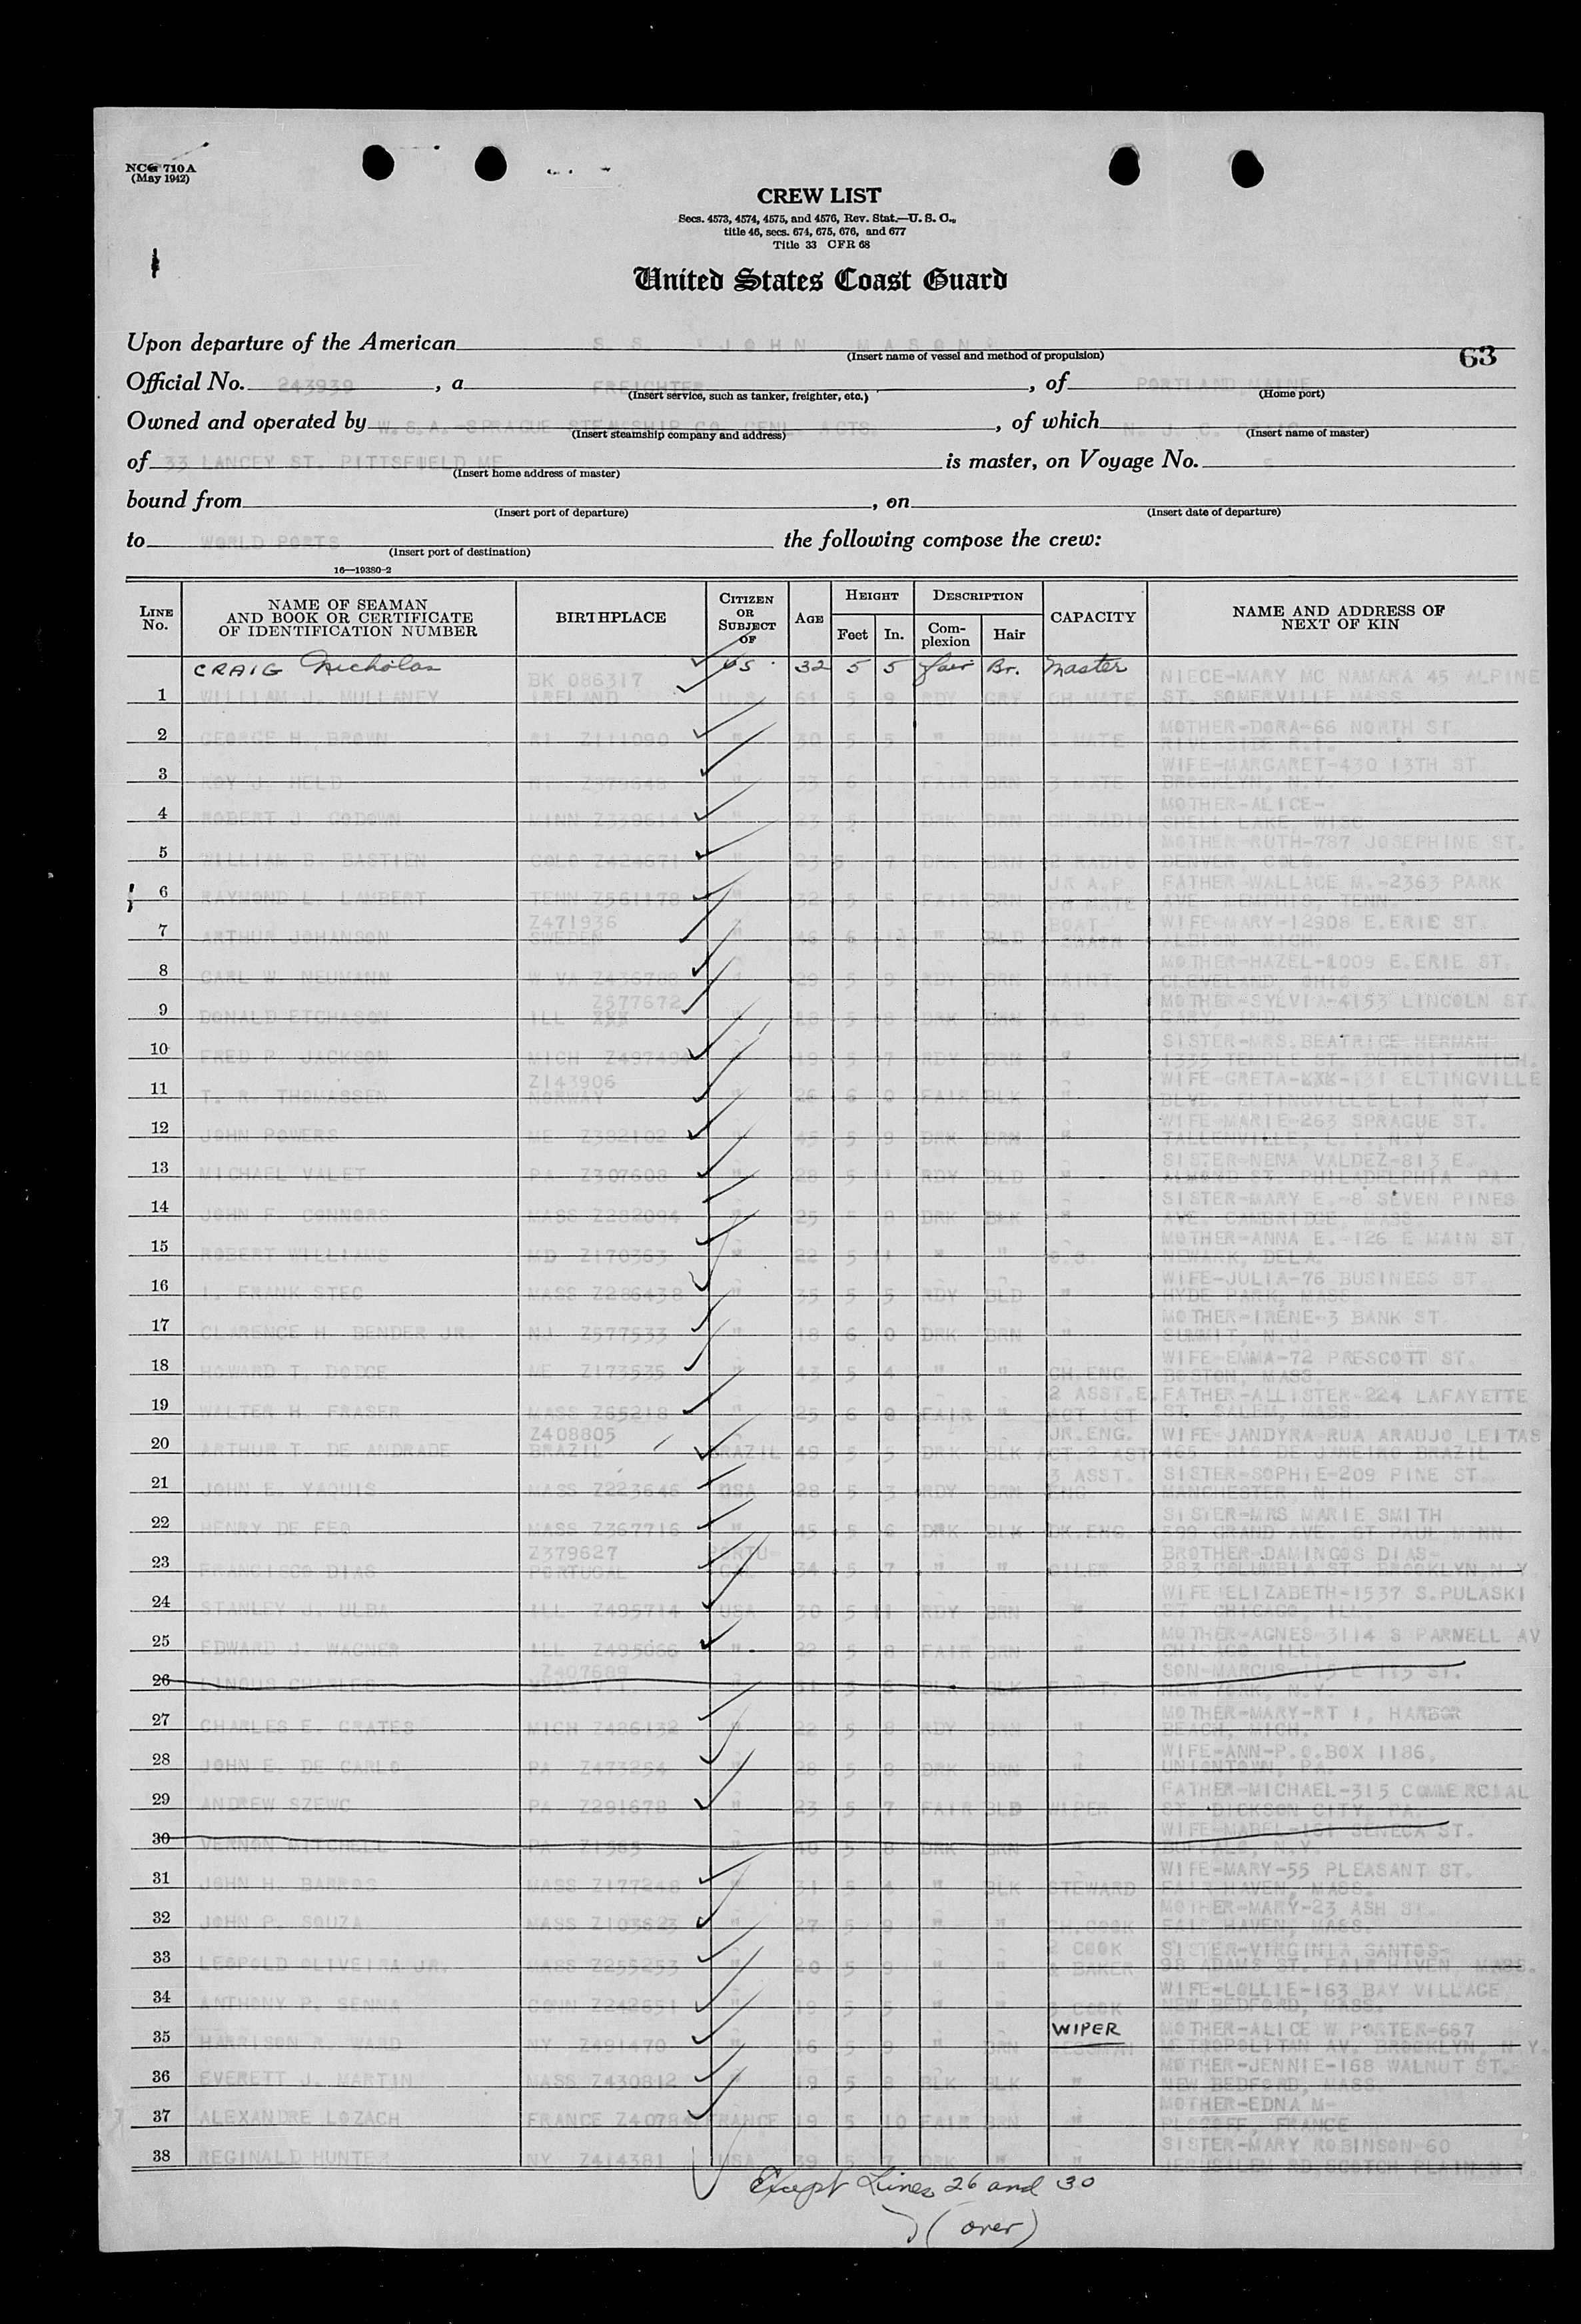 NCG 710A
(May 1942)
CREW LIST
Secs. 4573, 4574, 4575, and 4576, Rev. Stat.—U. S. C.,
title 46, secs. 674, 675, 676, and 677
Title 33 CFR 68
United States Coast Guard
63
Upon departure of the American S. S. "JOHN MASON"
(Insert name of vessel and method of propulsion)
Official No. 243939, a FREIGHTER, of PORTLAND, MAINE
(Insert service, such as tanker, freighter, etc.) (Home port)
Owned and operated by W.S.A.-SPRAGUE STEAMSHIP CO. GENL. AGTS., of which N. J. C. CRAIG
(Insert steamship company and address) (Insert name of master)
of 33 LANCEY ST. PITTSFIELD ME is master, on Voyage No.
(Insert home address of master)
bound from , on
(Insert port of departure) (Insert date of departure)
to WORLD PORTS the following compose the crew:
(Insert port of destination)
16—19380-2
LINE No. NAME OF SEAMAN AND BOOK OR CERTIFICATE OF IDENTIFICATION NUMBER BIRTHPLACE CITIZEN OR SUBJECT OF AGE HEIGHT Feet In. DESCRIPTION Complexion Hair CAPACITY NAME AND ADDRESS OF NEXT OF KIN
CRAIG Nicholas US 32 5 5 fair Br. Master
1 WILLIAM J. MULLANEY BK 086317 IRELAND U.S. 61 5 9 RDY GRY CH MATE NIECE-MARY MC NAMARA 45 ALPINE ST. SOMERVILLE MASS
2 GEORGE H. BROWN RI Z111090 " 30 5 5 " BRN 2 MATE MOTHER-DORA-66 NORTH ST. RIVERSIDE R.I.
3 ROY J. HELD Z379648 " 33 6 FAIR BRN 3 MATE WIFE-MARGARET-430 13TH ST. BROOKLYN, N.Y.
4 ROBERT J. GODOWN MINN Z338614 " 23 5 DRK BRN CH RADIO MOTHER-ALICE- SHELL LAKE, WISC
5 WILLIAM B. BASTIEN COLO Z424671 " 23 5 7 DRK BRN 2 RADIO MOTHER-RUTH-787 JOSEPHINE ST. DENVER, COLO.
6 RAYMOND L. LAMBERT TENN Z561178 " 32 5 8 FAIR BRN JR A.P. FATHER-WALLACE M.-2363 PARK AVE. MEMPHIS, TENN.
7 ARTHUR JOHANSON Z471936 SWEDEN " 46 6 " BLD BOAT SWAIN WIFE-MARY-12908 E.ERIE ST. ALBION, MICH.
8 CARL W. NEUMANN W VA Z436788 " 29 5 9 RDY BRN MAINT. MOTHER-HAZEL-1009 E.ERIE ST. CLEVELAND, OHIO
9 DONALD ETCHASON Z577672 ILL XXX " 18 5 8 DRK BRN A.B. MOTHER-SYLVIA-4153 LINCOLN ST. GARY, IND.
10 FRED P. JACKSON MICH Z497494 " 19 5 7 RDY BRN " SISTER-MRS.BEATRICE HERMAN 1335 TEMPLE ST. DETROIT, MICH.
11 T. R. THOMASSEN Z143906 NORWAY " 26 6 0 FAIR BLK " WIFE-GRETA-XXX-131 ELTINGVILLE BLVD. ELTINGVILLE L.I. N.Y
12 JOHN POWERS ME Z382102 " 45 5 9 DRK BRN " WIFE-MARIE-263 SPRAGUE ST. TALLENVILLE, L.I., N.Y
13 MICHAEL VALET PA Z307608 " 28 5 11 RDY BLD " SISTER-NENA VALDEZ-813 E. ALMOND ST. PHILADELPHIA, PA
14 JOHN F. CONNORS MASS Z282094 " 25 5 8 DRK BLK " SISTER-MARY E.-8 SEVEN PINES AVE. CAMBRIDGE, MASS.
15 ROBERT WILLIAMS MD Z170363 " 22 5 11 " " O.S. MOTHER-ANNA E.-126 E MAIN ST. NEWARK, DELA.
16 I. FRANK STEC MASS Z286438 " 35 5 5 RDY BLD " WIFE-JULIA-76 BUSINESS ST. HYDE PARK, MASS.
17 CLARENCE H. BENDER JR. NJ Z577533 " 18 6 0 DRK BRN " MOTHER-IRENE-3 BANK ST. SUMMIT, N.J.
18 HOWARD T. DODGE ME Z173535 " 43 5 4 " " CH.ENG. WIFE-EMMA-72 PRESCOTT ST. BOSTON, MASS.
19 WALTER H. FRASER MASS Z65218 " 25 6 0 FAIR " 2 ASST.E. ACT 1ST FATHER-ALLISTER-224 LAFAYETTE ST. SALEM, MASS
20 ARTHUR T. DE ANDRADE Z408805 BRAZIL BRAZIL 49 5 5 DRK BLK JR.ENG. ACT.2 AST WIFE-JANDYRA-RUA ARAUJO LEITAS 465 RIO DE JANEIRO BRAZIL
21 JOHN E. YAQUIS MASS Z223646 USA 28 5 3 RDY BRN 3 ASST. ENG. SISTER-SOPHIE-209 PINE ST. MANCHESTER, N.H.
22 HENRY DE FEO MASS Z367716 " 45 5 6 DRK BLK DK.ENG. SISTER-MRS MARIE SMITH 599 GRAND AVE. ST PAUL MINN
23 FRANCISCO DIAS Z379627 PORTUGAL PORTUGAL 34 5 7 " " OILER BROTHER-DAMINGOS DIAS- 283 COLUMBIA ST. BROOKLYN,N.Y
24 STANLEY J. ULBA ILL Z495714 USA 30 5 11 RDY BRN " WIFE-ELIZABETH-1537 S.PULASKI ST. CHICAGO, ILL.
25 EDWARD J. WAGNER ILL Z495066 " 22 5 8 FAIR BRN " MOTHER-AGNES-3114 S PARNELL AV CHICAGO, ILL.
26 CHARLES Z407689 " 31 5 8 BLK BLK SON-MARCUS 113 ST. NEW YORK, N.Y.
27 CHARLES E. GRATES MICH Z486132 " 22 5 8 RDY BRN " MOTHER-MARY-RT 1, HARBOR BEACH, MICH.
28 JOHN E. DE CARLO PA Z473254 " 28 5 8 DRK BRN " WIFE-ANN-P.O.BOX 1186, UNIONTOWN, PA.
29 ANDREW SZEWC PA Z291678 " 23 5 7 FAIR BLD WIPER FATHER-MICHAEL-315 COMMERCIAL ST. DICKSON CITY, PA.
30 VERNON MITCHELL PA " 40 5 8 DRK BRN " WIFE-MABEL-161 SENECA ST. BUFFALO, N.Y.
31 JOHN H. BARROS MASS Z177248 " 31 5 4 " BLK STEWARD WIFE-MARY-55 PLEASANT ST. FAIRHAVEN, MASS.
32 JOHN P. SOUZA MASS Z103623 " 27 5 9 " " CH.COOK MOTHER-MARY-23 ASH ST. FAIRHAVEN, MASS.
33 LEOPOLD OLIVEIRA JR. MASS Z255253 " 20 5 9 " " 2 COOK & BAKER SISTER-VIRGINIA SANTOS- 98 ADAMS ST. FAIRHAVEN, MASS.
34 ANTHONY P. SENNA CONN Z242651 " 19 5 5 " " 3 COOK WIFE-LOLLIE-163 BAY VILLAGE NEW BEDFORD, MASS.
35 HARRISON R. WARD NY Z491470 " 16 5 9 " BRN WIPER MESSMAN MOTHER-ALICE W PORTER-667 METROPOLITAN AV. BROOKLYN, N.Y.
36 EVERETT J. MARTIN MASS Z430812 " 19 5 8 BLK BLK " MOTHER-JENNIE-168 WALNUT ST. NEW BEDFORD, MASS.
37 ALEXANDRE LOZACH FRANCE Z4078 FRANCE 19 5 10 FAIR BRN " MOTHER-EDNA M- PLOGOFF, FRANCE
38 REGINALD HUNTER NY Z414381 USA 39 5 7 DRK " " SISTER-MARY ROBINSON-60 JERUSALEM RD,SCOTCH PLAIN,N.Y.
Except Lines 26 and 30
(over)